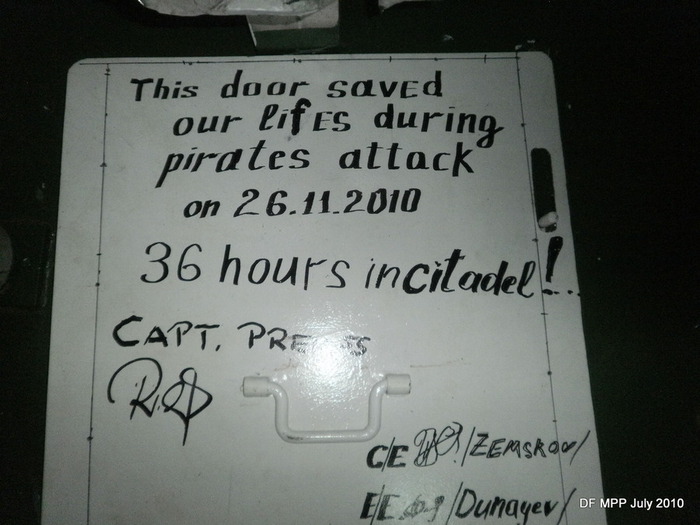 This door saved
our lifes during
pirates attack
on 26.11.2010
36 hours in citadel!
CAPT.
C/E /ZEMSKOV/
E/E /Dunayev/
DF MPP July 2010